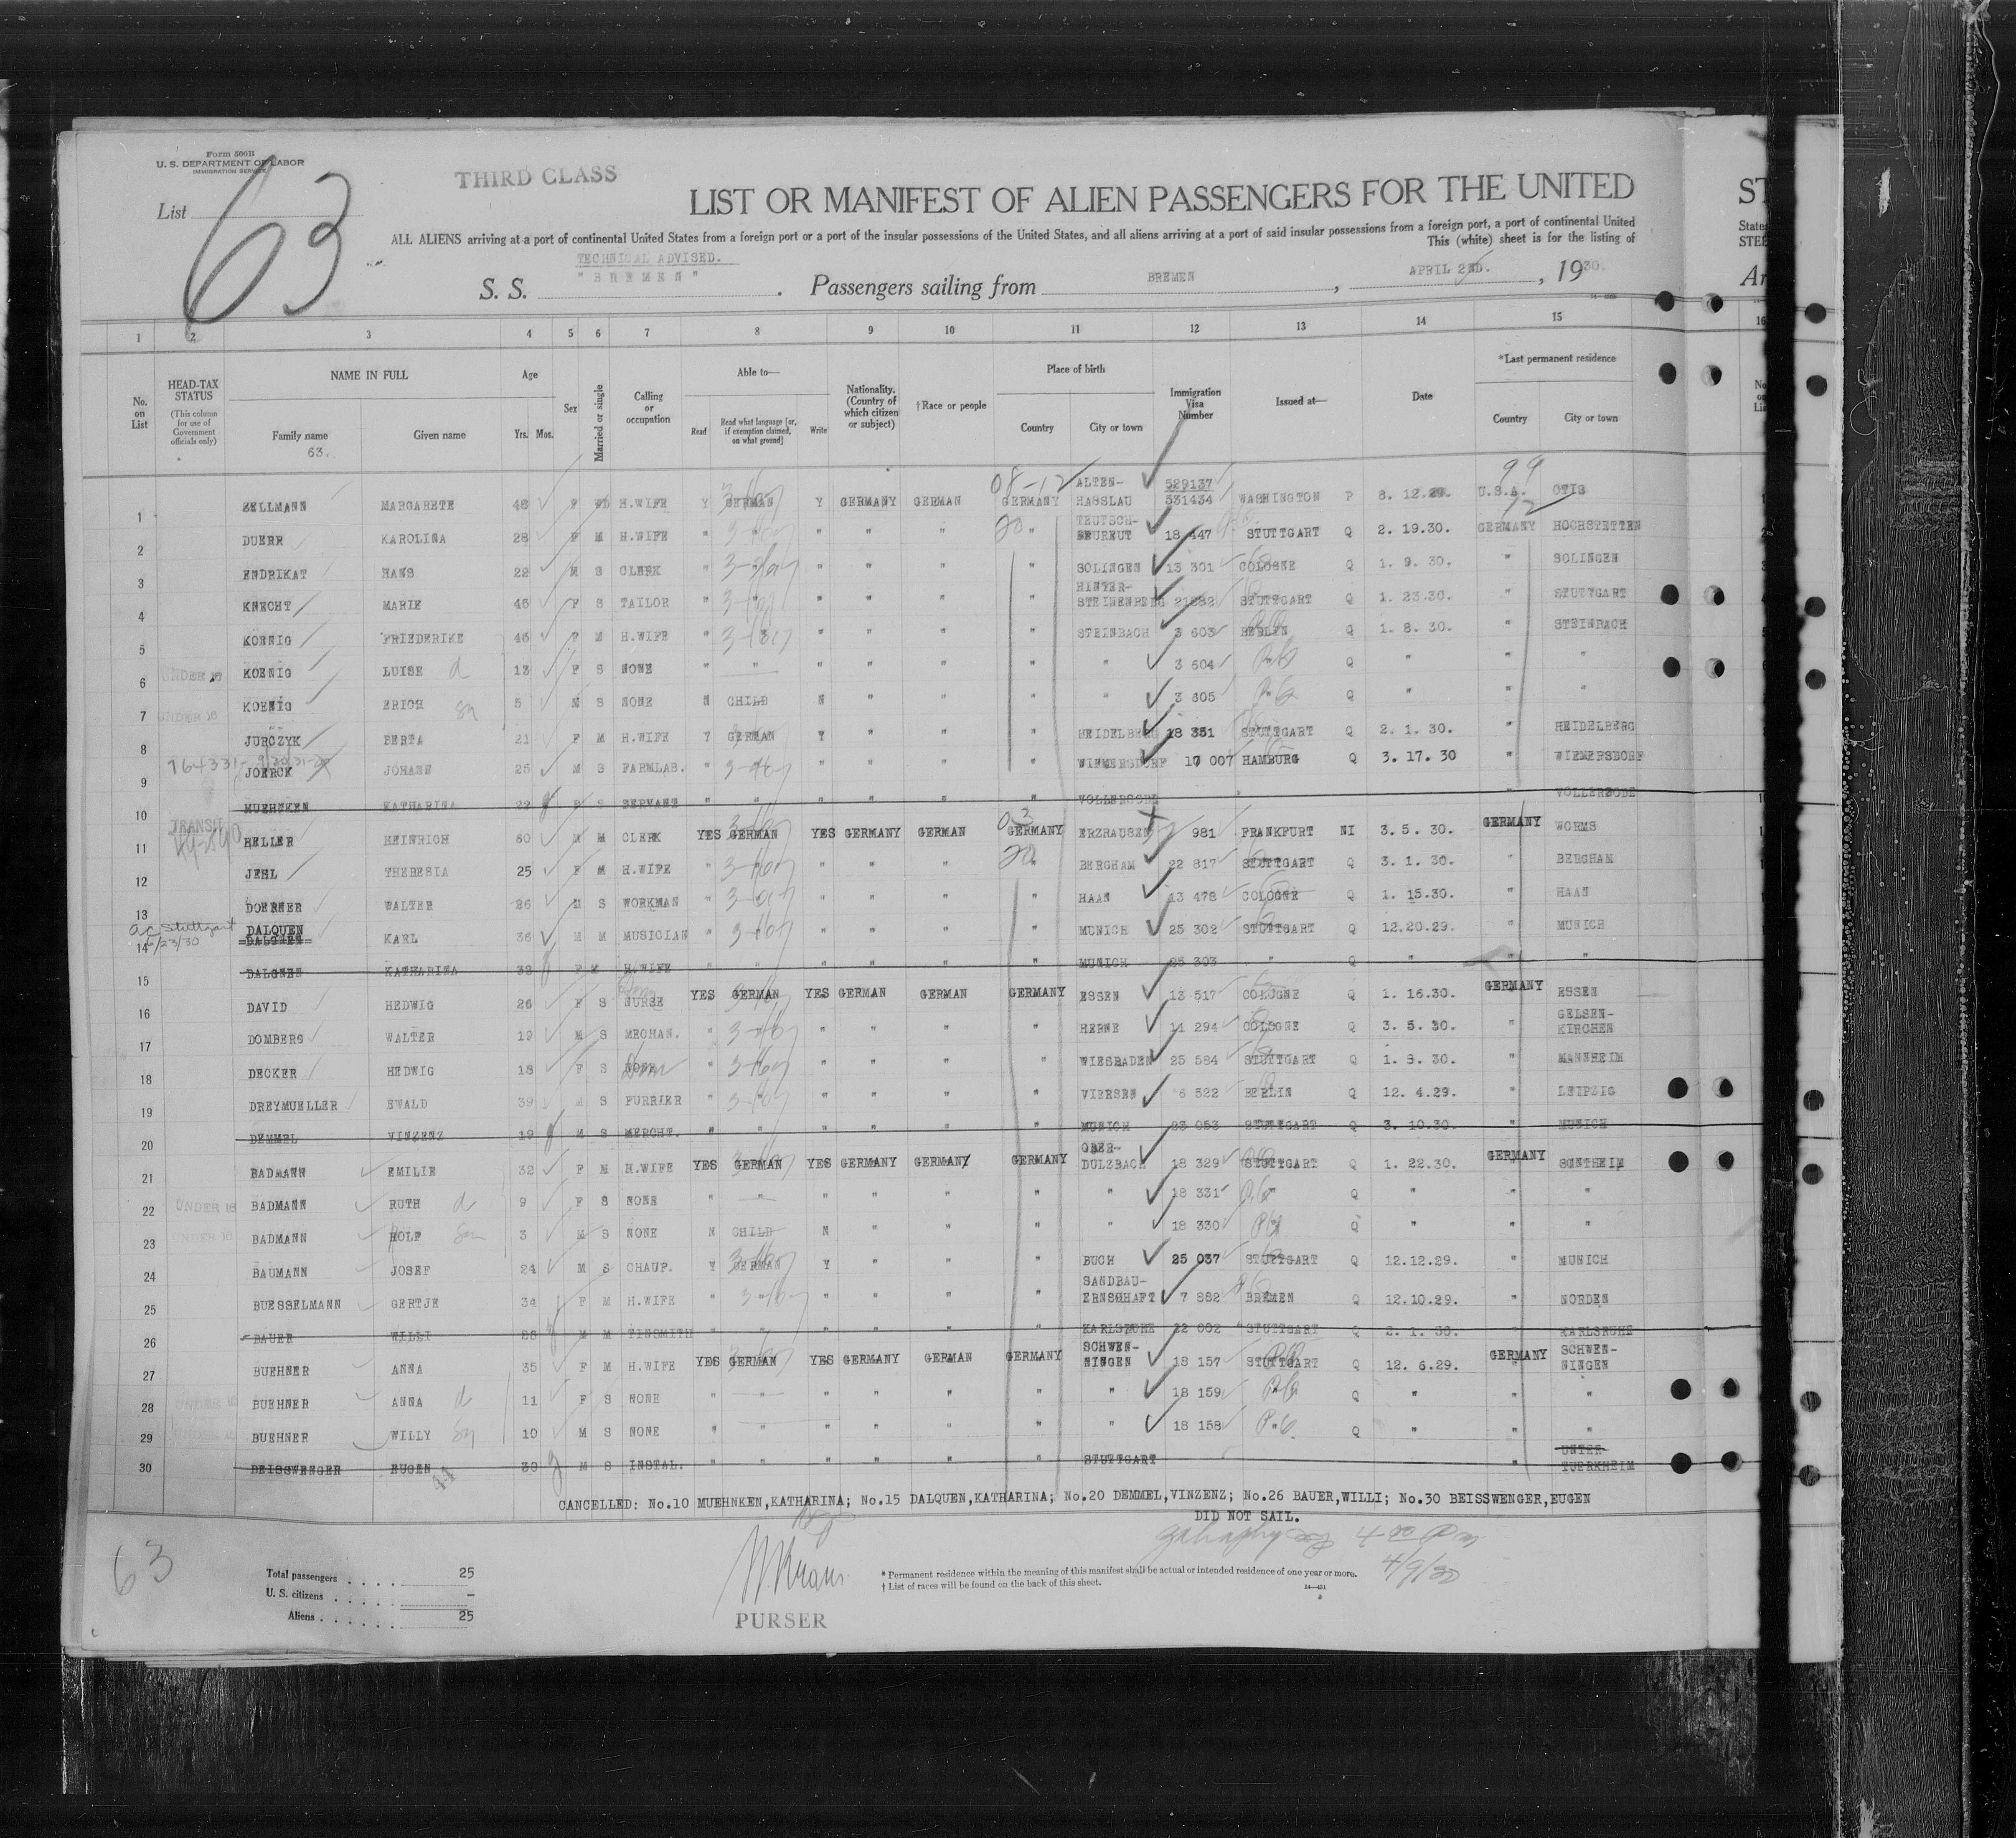 Form 500B
U. S. DEPARTMENT OF LABOR
IMMIGRATION SERVICE
THIRD CLASS
List 63
LIST OR MANIFEST OF ALIEN PASSENGERS FOR THE UNITED
ST
ALL ALIENS arriving at a port of continental United States from a foreign port or a port of the insular possessions of the United States, and all aliens arriving at a port of said insular possessions from a foreign port, a port of continental United
State
This (white) sheet is for the listing of
STEE
TECHNICAL ADVISED.
S. S. "BREMEN". Passengers sailing from BREMEN, APRIL 2ND., 1930.
Ar
1 2 3 4 5 6 7 8 9 10 11 12 13 14 15 16
No. on List
HEAD-TAX STATUS
(This column for use of Government officials only)
NAME IN FULL
Family name
63.
Given name
Age
Yrs. Mos.
Sex
Married or single
Calling or occupation
Able to—
Read
Read what language [or, if exemption claimed, on what ground]
Write
Nationality. (Country of which citizen or subject)
†Race or people
Place of birth
Country
City or town
Immigration Visa Number
Issued at—
Date
*Last permanent residence
Country
City or town
08-12 99 12
1 ZELLMANN MARGARETE 48 F WD H.WIFE Y GERMAN Y GERMANY GERMAN GERMANY ALTEN-HASSLAU 529137 531434 WASHINGTON P 8. 12.29. U.S.A. OTIS
2 DUERR KAROLINA 28 F M H.WIFE " " " " " 20 " TEUTSCH-NEUREUT 18 447 STUTTGART Q 2. 19.30. GERMANY HOCHSTETTEN
3 ENDRIKAT HANS 22 M S CLERK " " " " " " SOLINGEN 13 301 COLOGNE Q 1. 9. 30. " SOLINGEN
4 KNECHT MARIE 45 F S TAILOR " " " " " " HINTER-STEINENBERG 21582 STUTTGART Q 1. 23.30. " STUTTGART
5 KOENIG FRIEDERIKE 45 F M H.WIFE " " " " " " STEINBACH 3 603 BERLIN Q 1. 8. 30. " STEINBACH
6 UNDER 16 KOENIG LUISE d 13 F S NONE " " " " " " " 3 604 Q " " "
7 UNDER 16 KOENIG ERICH sn 5 M S NONE N CHILD N " " " " 3 605 Q " " "
8 JURCZYK BERTA 21 F M H.WIFE Y GERMAN Y " " " HEIDELBERG 18 351 STUTTGART Q 2. 1. 30. " HEIDELBERG
9 JOERCK JOHANN 25 M S FARMLAB. " " " " " " WIEMERSDORF 17 007 HAMBURG Q 3. 17. 30 " WIEMERSDORF
10 MUEHNKEN KATHARINA 22 F S SERVANT " " " " " " VOLLERSODE " VOLLERSODE
11 TRANSIT HELLER HEINRICH 60 M M CLERK YES GERMAN YES GERMANY GERMAN 03 GERMANY ERZHAUSEN 981 FRANKFURT NI 3. 5. 30. GERMANY WORMS
12 JEHL THERESIA 25 F M H.WIFE " " " " " 20 " BERGHAM 22 817 STUTTGART Q 3. 1. 30. " BERGHAM
13 DOERNER WALTER 26 M S WORKMAN " " " " " " HAAN 13 478 COLOGNE Q 1. 15.30. " HAAN
ac Stuttgart 6/23/30
14 DALQUEN DALGNEN KARL 36 M M MUSICIAN " " " " " " MUNICH 25 302 STUTTGART Q 12.20.29. " MUNICH
15 DALGNEN KATHARINA 32 F M H.WIFE " " " " " " MUNICH 25 303 " Q " " "
16 DAVID HEDWIG 26 F S NURSE YES GERMAN YES GERMANY GERMAN GERMANY ESSEN 13 517 COLOGNE Q 1. 16.30. GERMANY ESSEN
17 DOMBERG WALTER 19 M S MECHAN. " " " " " " HERNE 11 294 COLOGNE Q 3. 5. 30. " GELSEN-KIRCHEN
18 DECKER HEDWIG 18 F S NONE Dom " " " " " " WIESBADEN 25 584 STUTTGART Q 1. 3. 30. " MANNHEIM
19 DREYMUELLER EWALD 39 M S FURRIER " " " " " " VIERSEN 6 522 BERLIN Q 12. 4.29. " LEIPZIG
20 DEMMEL VINZENZ 19 M S MERCHT. " " " " " " MUNICH 23 053 STUTTGART Q 3. 10.30. " MUNICH
21 BADMANN EMILIE 32 F M H.WIFE YES GERMAN YES GERMANY GERMANY GERMANY OBER-DULZBACH 18 329 STUTTGART Q 1. 22.30. GERMANY SONTHEIM
22 UNDER 16 BADMANN RUTH d 9 F S NONE " " " " " " " 18 331 " Q " " "
23 UNDER 16 BADMANN ROLF sn 3 M S NONE N CHILD N " " " " 18 330 " Q " " "
24 BAUMANN JOSEF 24 M S CHAUF. Y GERMAN Y " " " BUCH 25 037 STUTTGART Q 12.12.29. " MUNICH
25 BUESSELMANN GERTJE 34 F M H.WIFE " " " " " " SANDBAU-ERNSHAFT 7 882 BREMEN Q 12.10.29. " NORDEN
26 BAUER WILLI 28 M M TINSMITH " " " " " " KARLSRUHE 22 002 STUTTGART Q 2. 1. 30. " KARLSRUHE
27 BUEHNER ANNA 35 F M H.WIFE YES GERMAN YES GERMANY GERMAN GERMANY SCHWEN-NINGEN 18 157 STUTTGART Q 12. 6.29. GERMANY SCHWEN-NINGEN
28 UNDER 16 BUEHNER ANNA d 11 F S NONE " " " " " " " 18 159 Q " " "
29 UNDER 16 BUEHNER WILLY sn 10 M S NONE " " " " " " " 18 158 Q " " "
30 BEISSWENGER EUGEN 30 M S INSTAL. " " " " " " STUTTGART " UNTER-TUERKHEIM
CANCELLED: No.10 MUEHNKEN,KATHARINA; No.15 DALQUEN,KATHARINA; No.20 DEMMEL,VINZENZ; No.26 BAUER,WILLI; No.30 BEISSWENGER,EUGEN
DID NOT SAIL.
63
4/9/30
Total passengers . . . . 25
U. S. citizens . . . . . –
Aliens . . . . . . 25
PURSER
* Permanent residence within the meaning of this manifest shall be actual or intended residence of one year or more.
† List of races will be found on the back of this sheet.
14—431